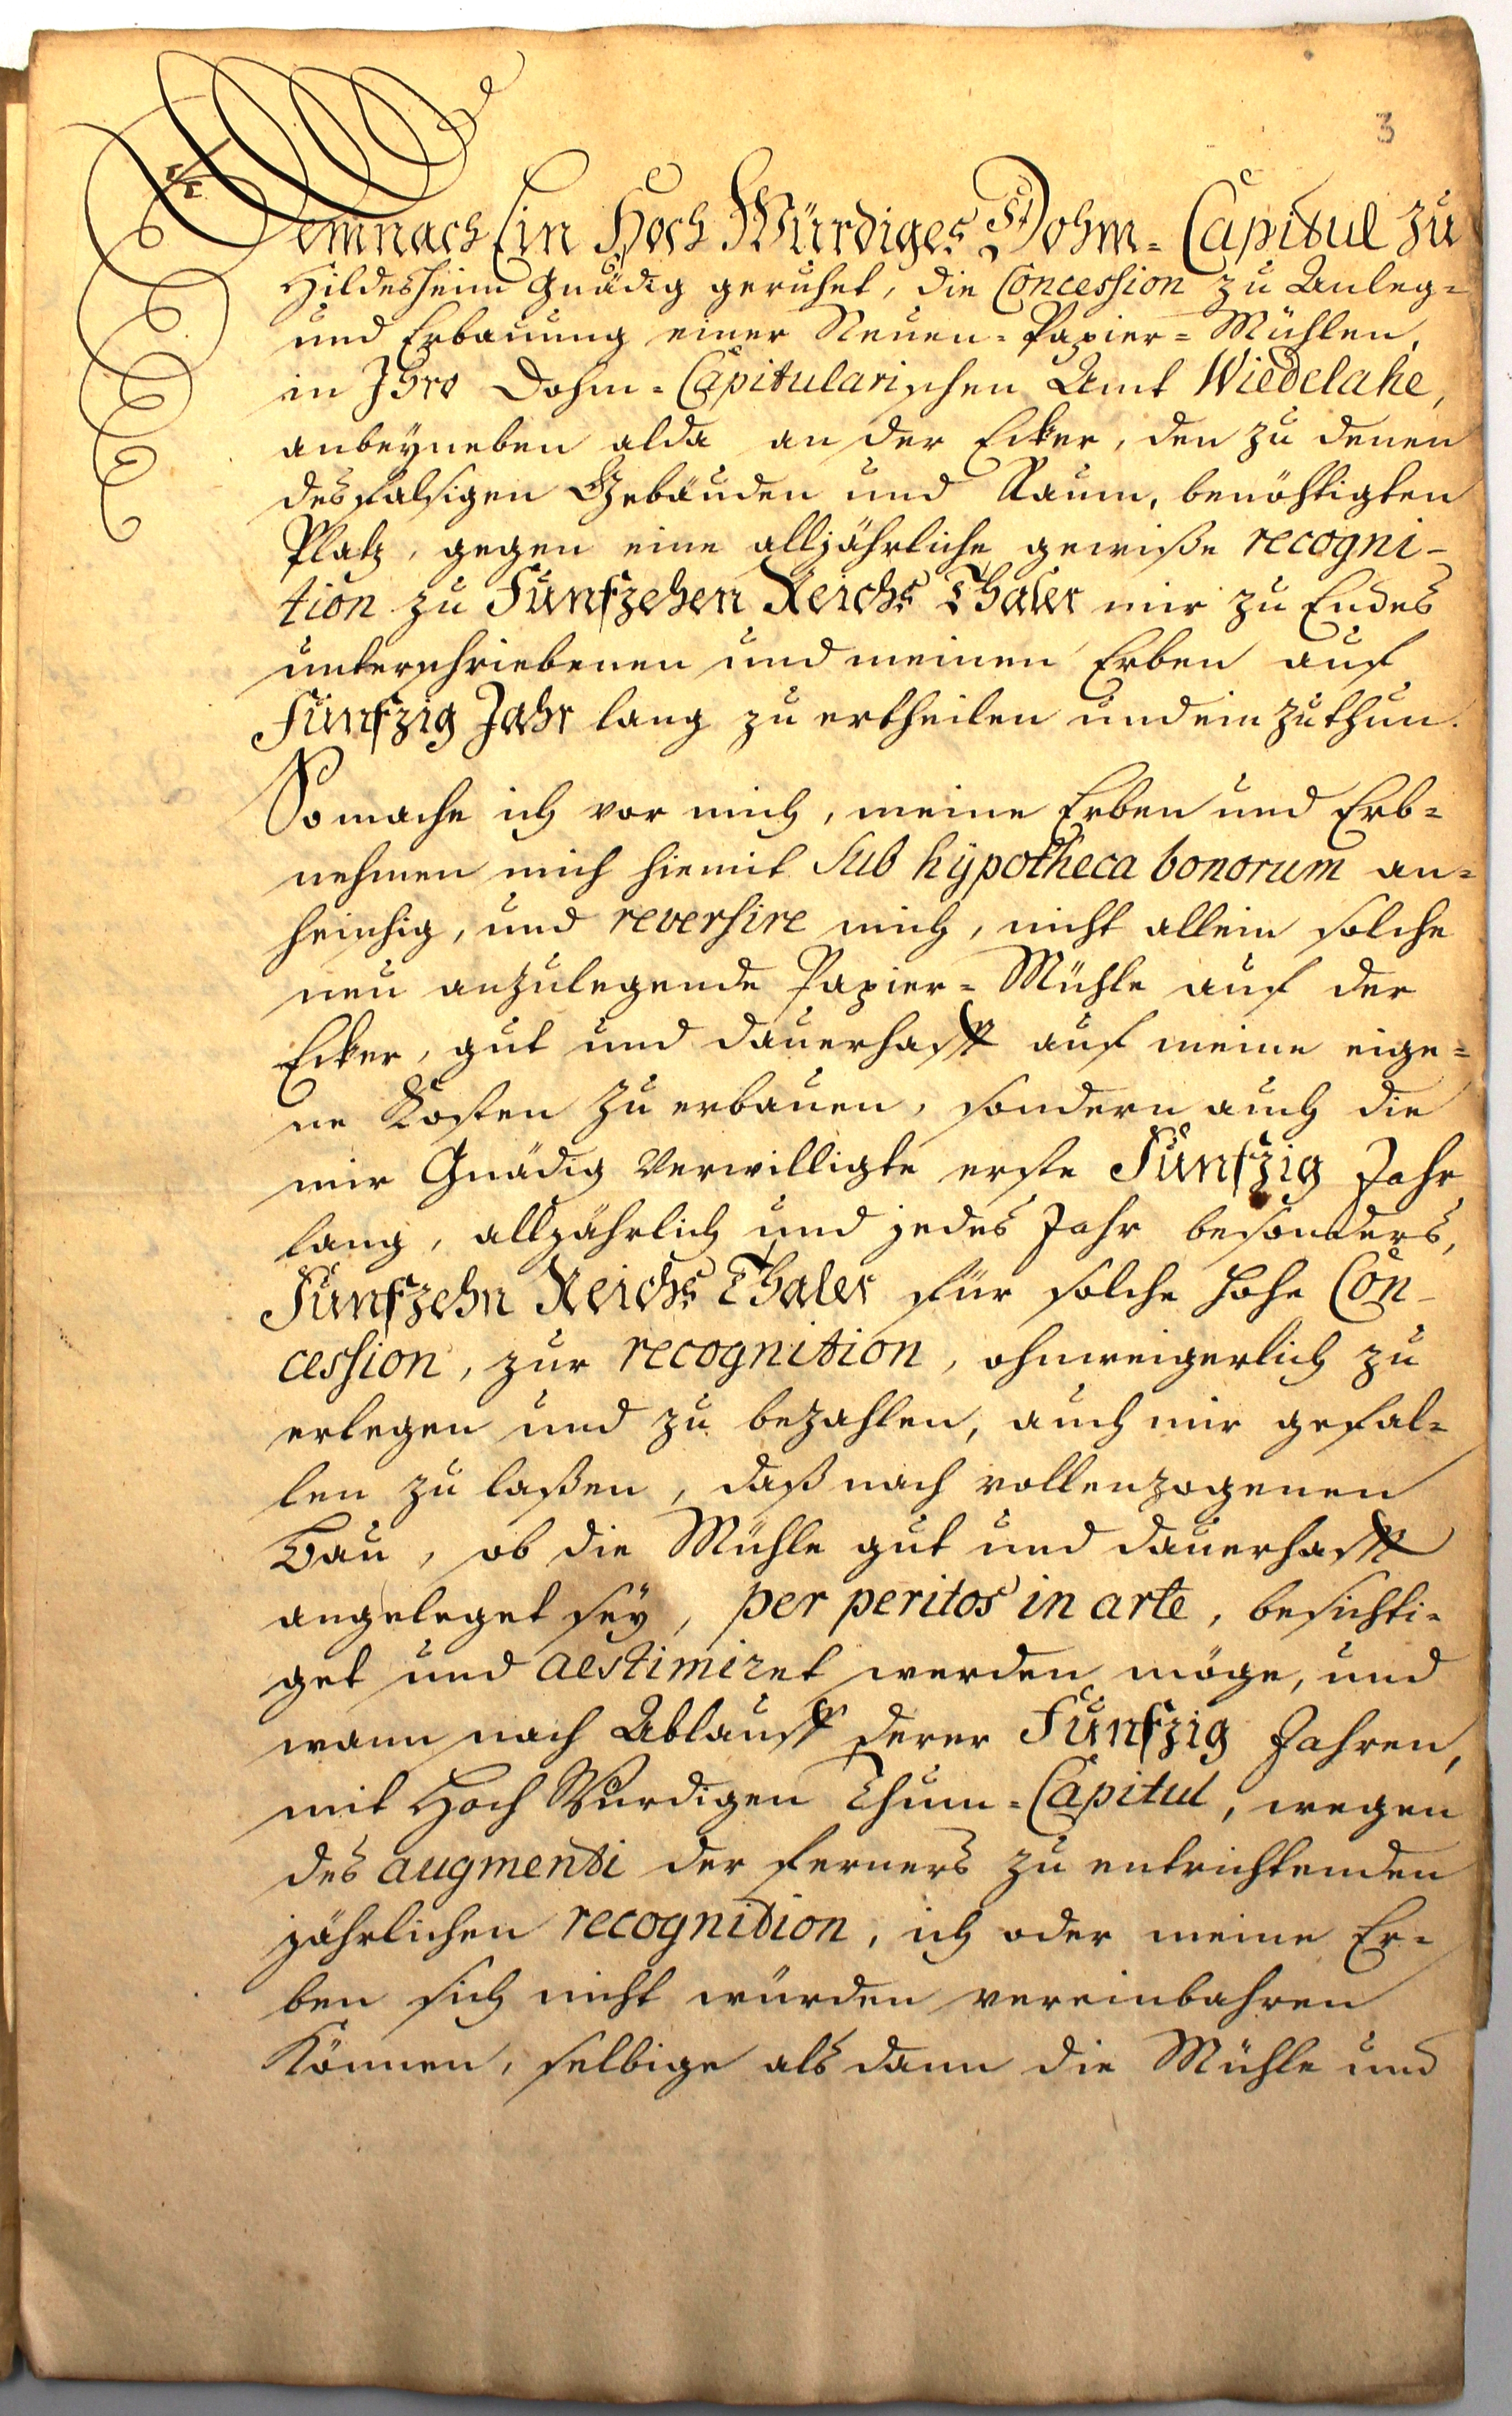 3
Demnach Ein Hoch Würdiges Dohm-Capitul zu
Hildesheim Gnädig geruhet, die Concession zu Anleg-
und Erbauung einer Neuen-Papier-Mühlen,
in Ihro Dohm-Capitularischen Amt Wiedelahe,
anbeyneben alda an der Ecker, den zu denen
desfalsigen Gebäuden und Raum, benöhtigten
Platz, gegen eine alljährliche gewiße recogni-
tion zu Funfzehen Reichs Thaler mir zu Endes
unterschriebenen und meinen Erben auf
Funfzig Jahr lang zu ertheilen und einzuthun.
So mache ich vor mich, meine Erben und Erb-
nehmen mich hiemit sub hypotheca bonorum an-
heischig, und reversire mich, nicht allein solche
neu anzulegende Papier-Mühle auf der
Ecker, gut und dauerhafft auf meine eige-
ne Kosten zu erbauen, sondern auch die
mir Gnädig Verwilligte erste Funfzig Jahr
lang, alljährlich und jedes Jahr besonders,
Funfzehn Reichs Thaler für solche hohe Con-
cession, zur recognition, ohnweigerlich zu
erlegen und zu bezahlen, auch mir gefal-
len zu laßen, daß nach vollenzogenen
Bau, ob die Mühle gut und dauerhafft
angeleget sey, per peritos in arte, besichti-
get und aestimiret werden möge, und
wann nach Ablaufft derer Funfzig Jahren,
mit Hoch Würdigen Thum-Capitul, wegen
des augmenti der ferners zu entrichtenden
jährlichen recognition, ich oder meine Er-
ben sich nicht würden vereinbahren
Können, selbige als dann die Mühle und